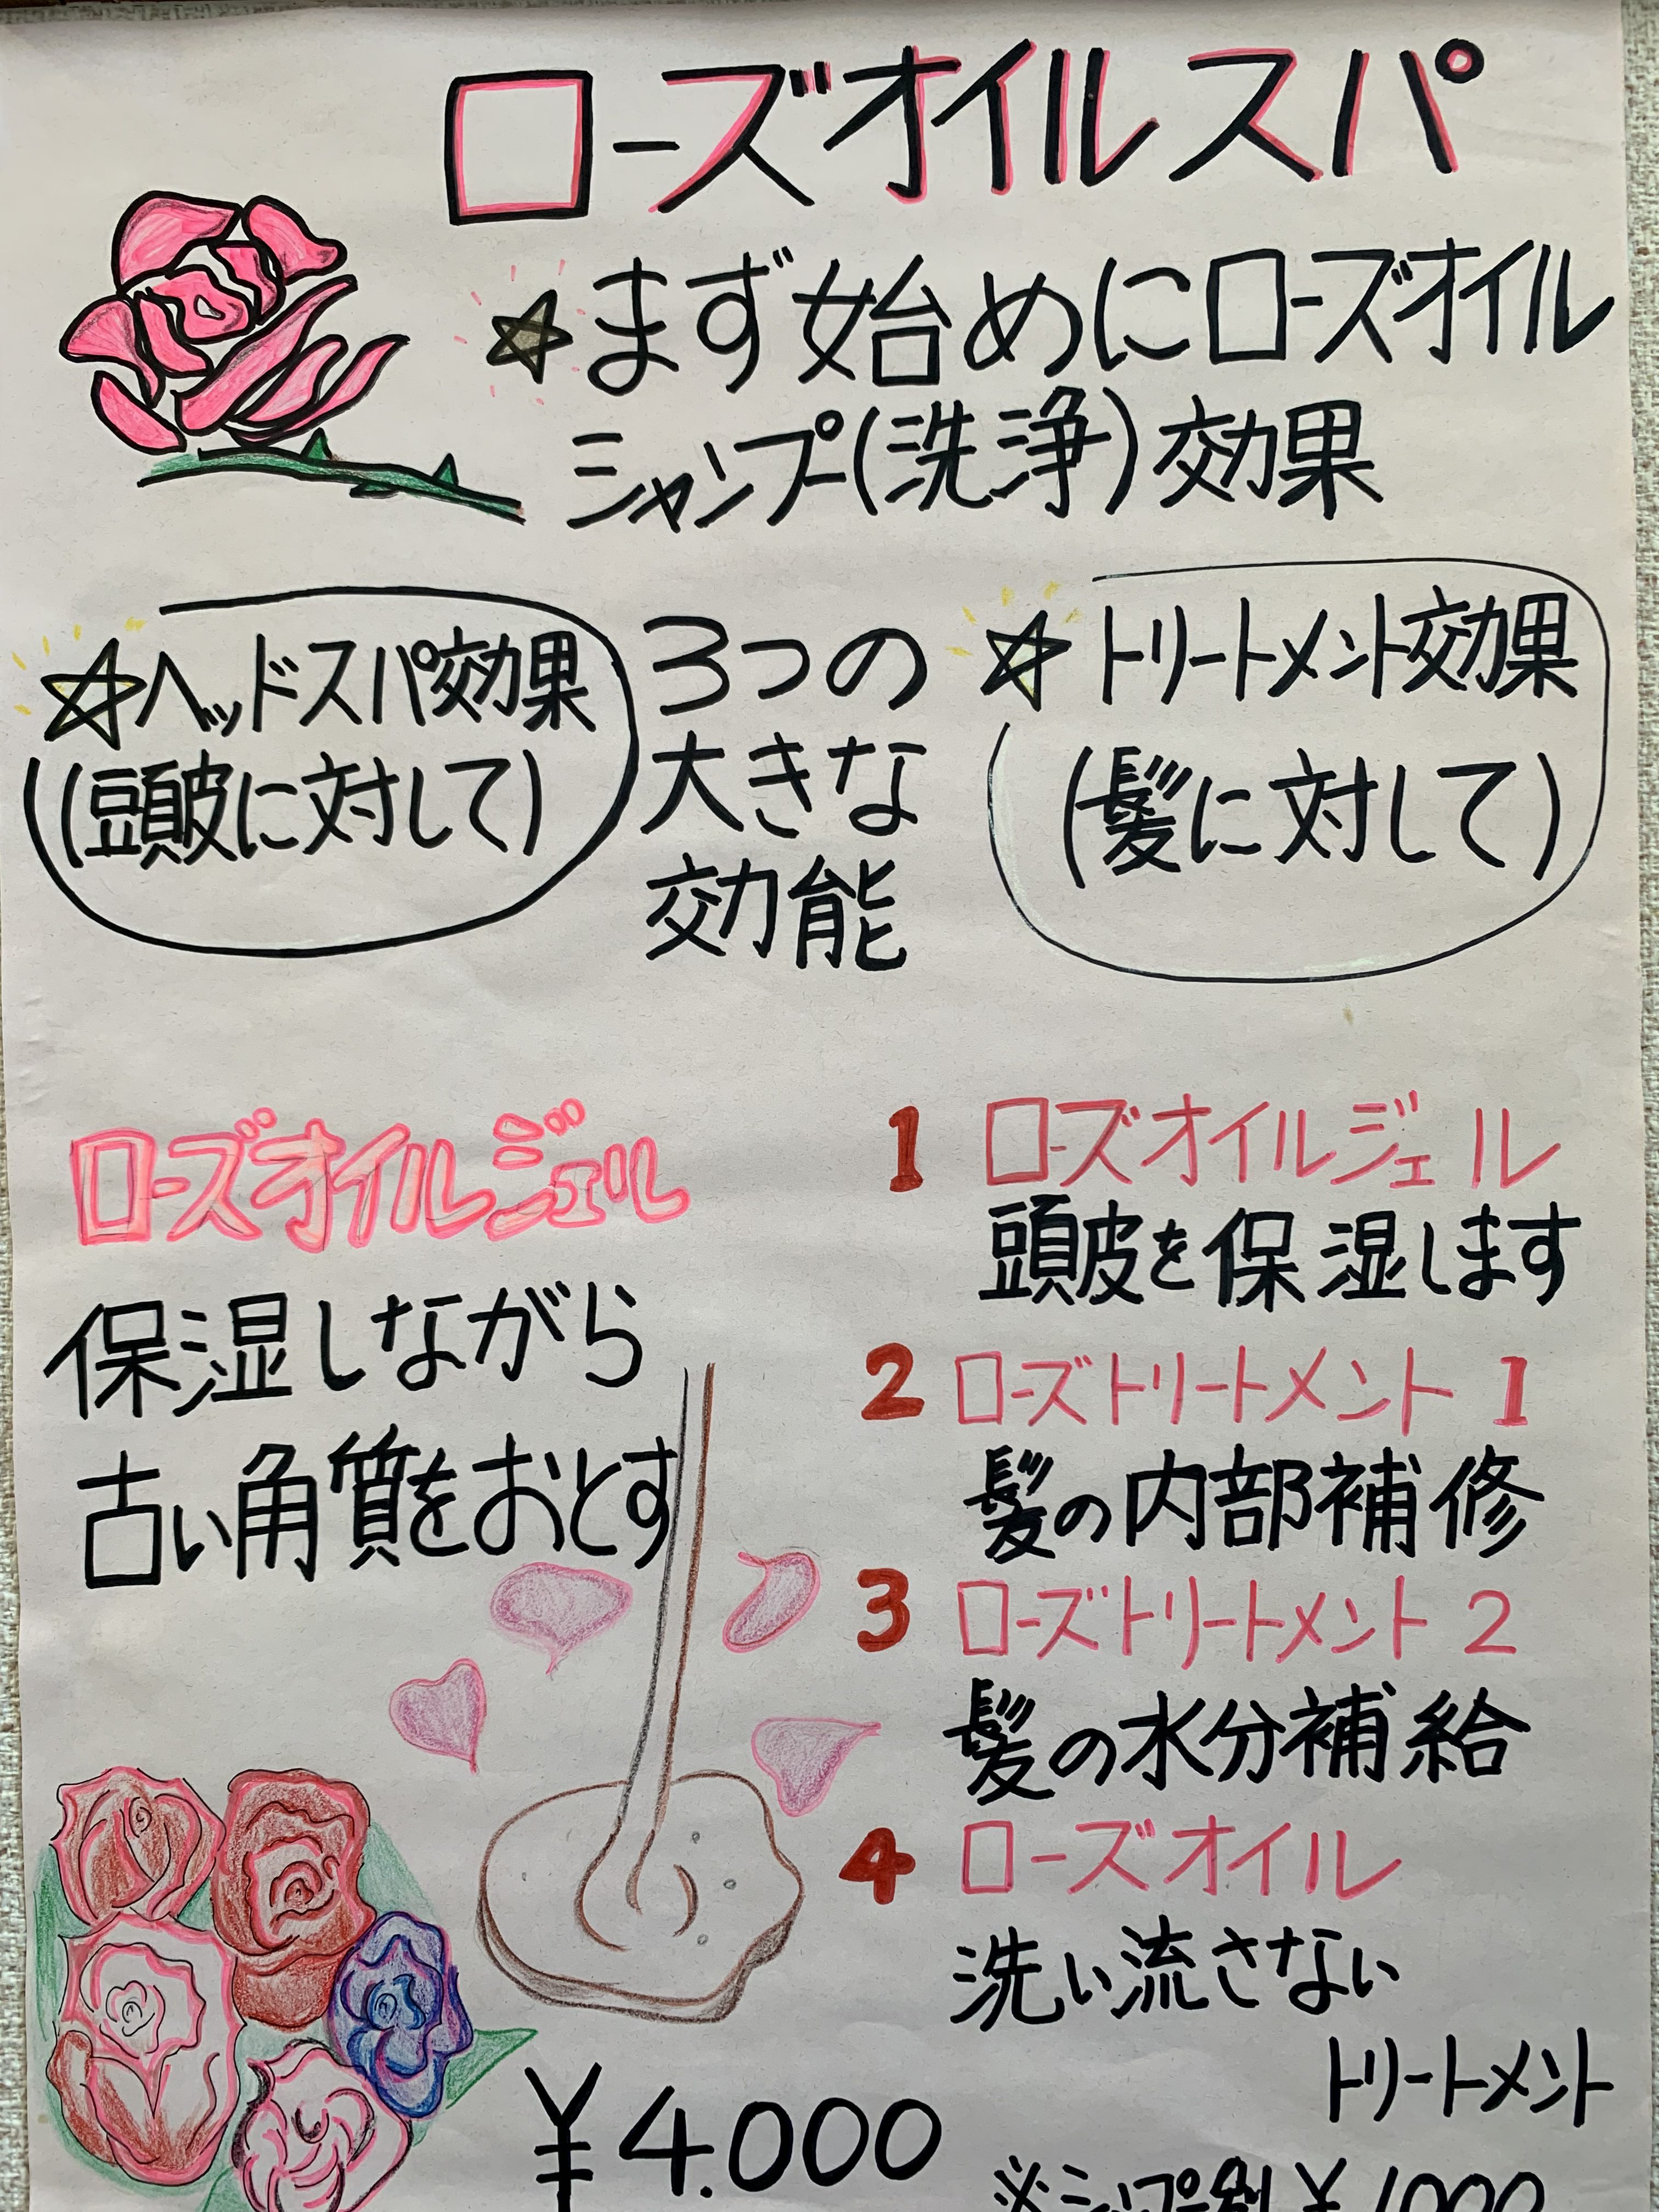 ローズオイルスパ
☆まず始めにローズオイル
シャンプー(洗浄)効果
☆ヘッドスパ効果
(頭皮に対して)
3つの
大きな
効能
☆トリートメント効果
(髪に対して)
ローズオイルジェル
保湿しながら
古い角質をおとす
1 ローズオイルジェル
頭皮を保湿します
2 ローズトリートメント 1
髪の内部補修
3 ローズトリートメント 2
髪の水分補給
4 ローズオイル
洗い流さない
トリートメント
¥4.000
※シャンプー別¥1000